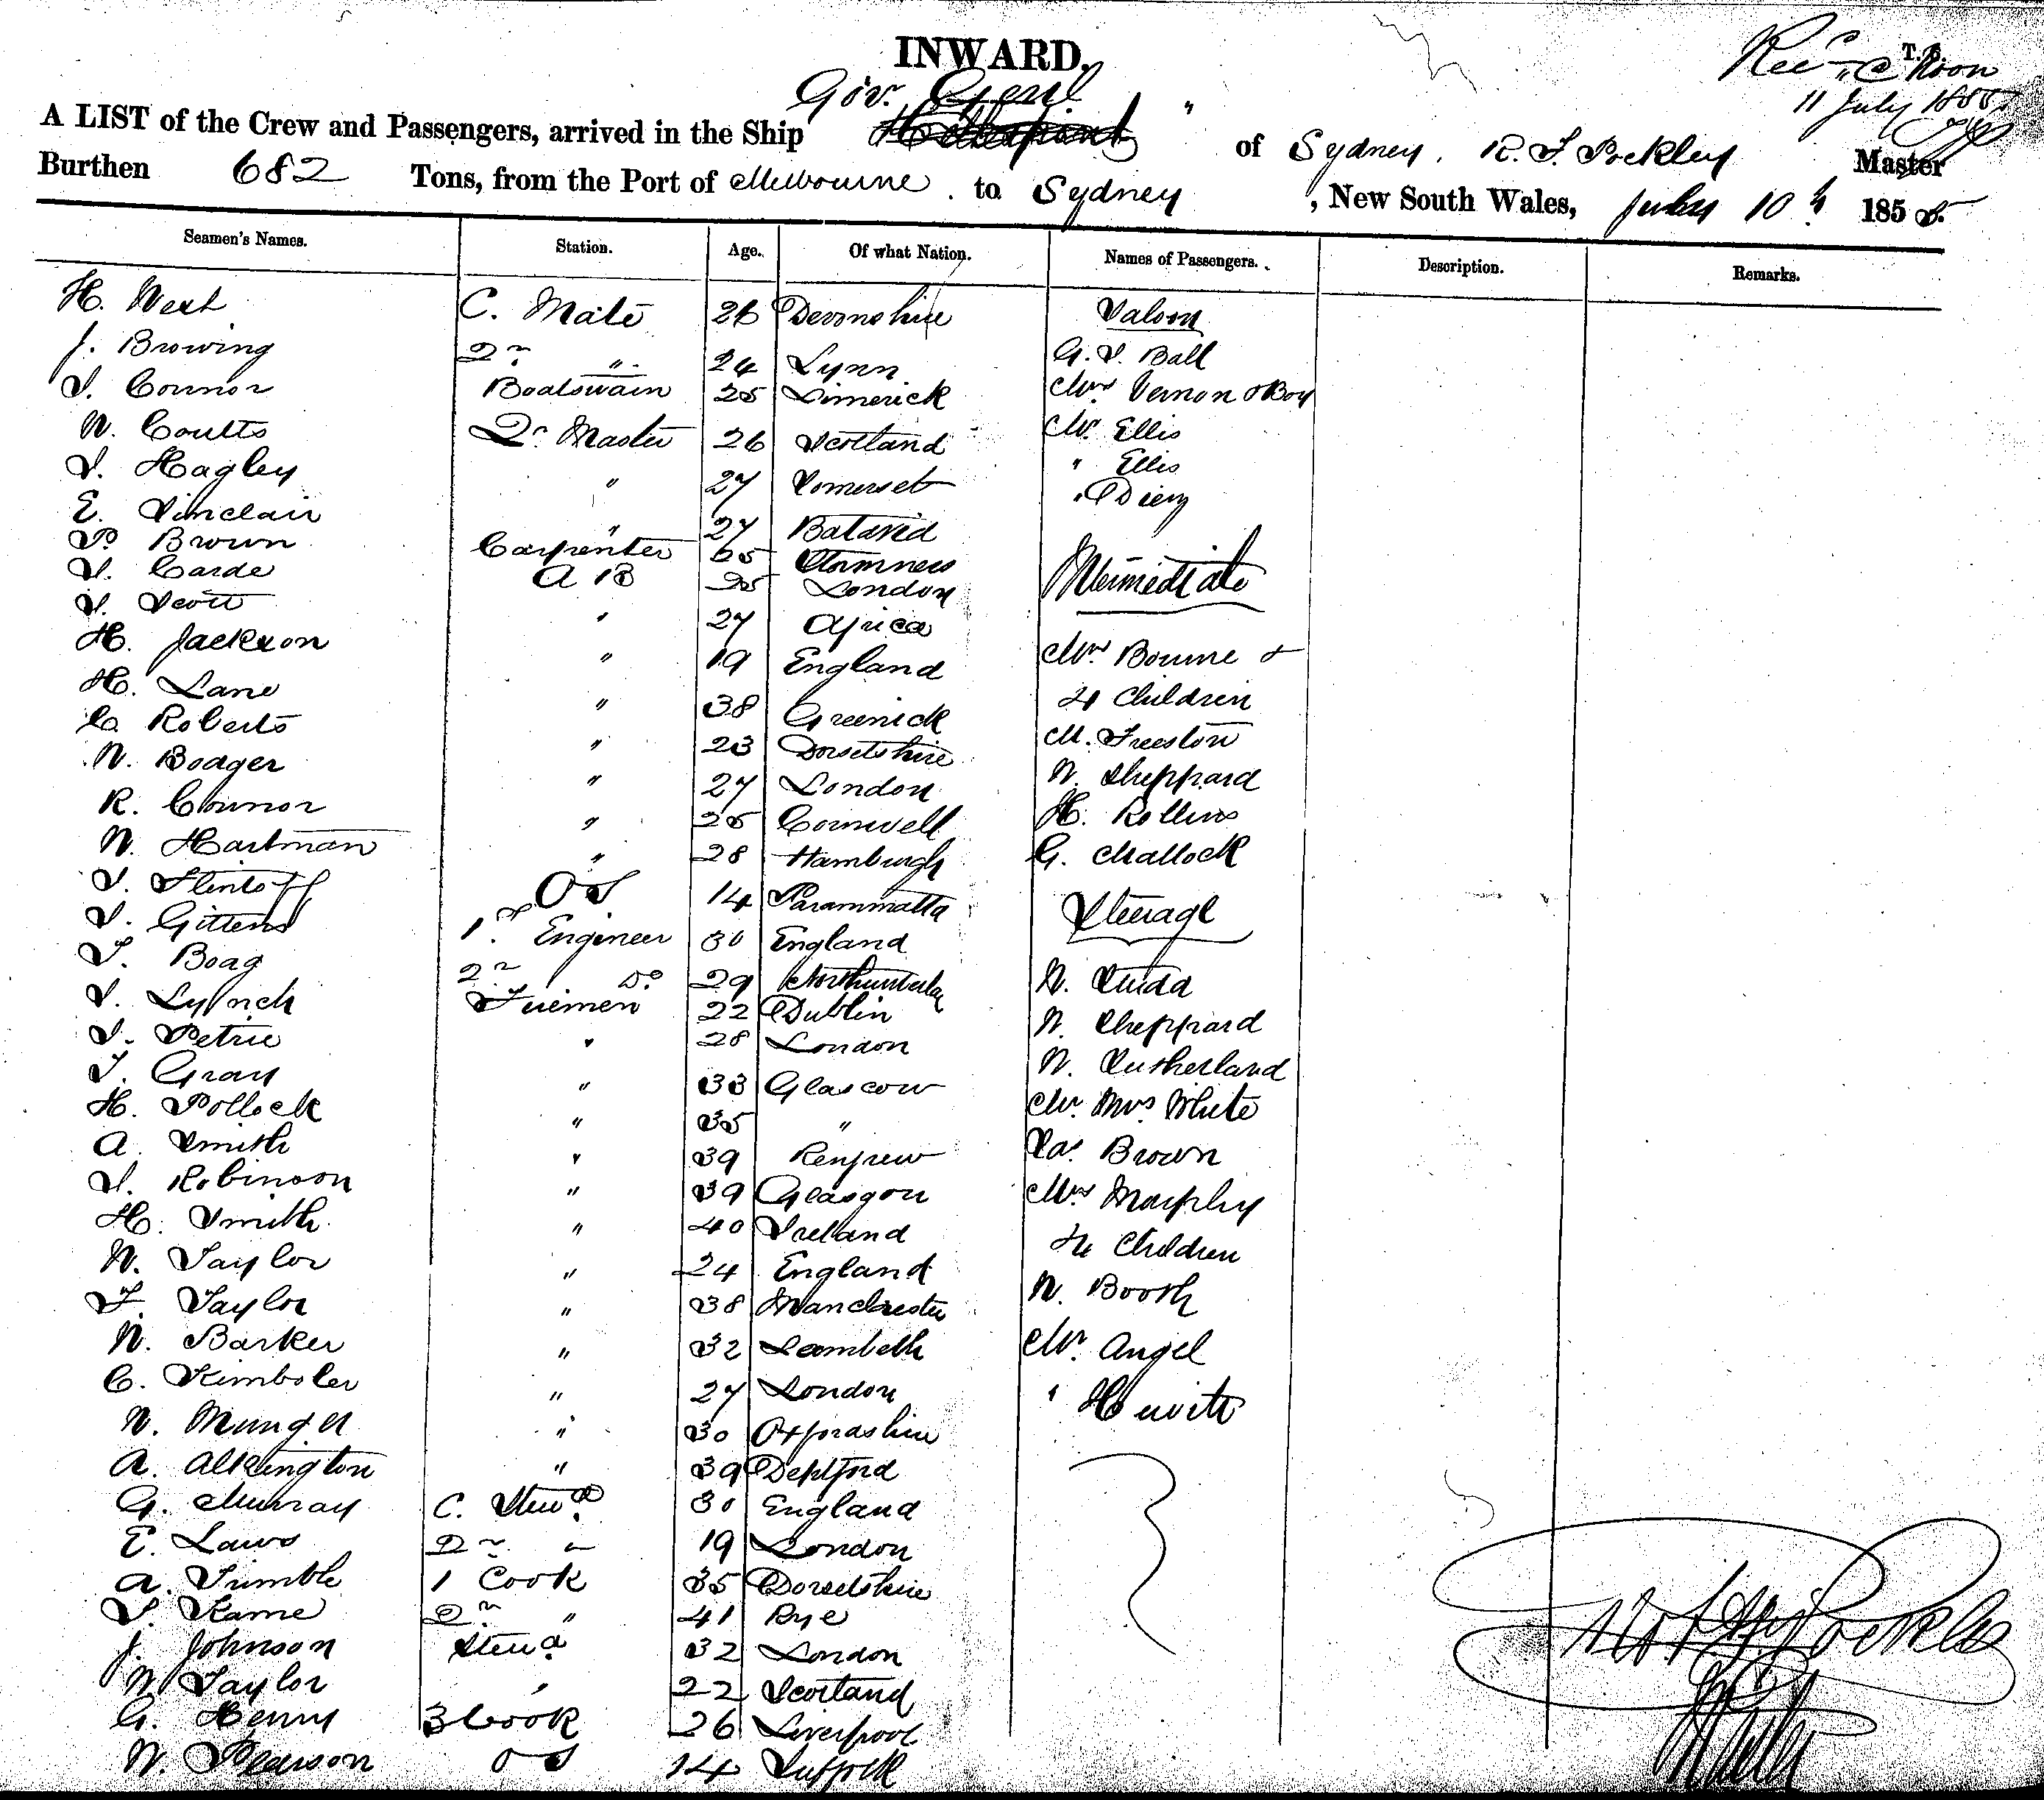 INWARD.
Gov. Genl "
11 July 1855
A LIST of the Crew and Passengers, arrived in the Ship of Sydney. R. F. Pockley Master
Burthen 682 Tons, from the Port of Melbourne. to Sydney, New South Wales, July 10th 1855.
Seamen's Names. Station. Age. Of what Nation. Names of Passengers. Description. Remarks.
H. West C. Mate 26 Devonshire Saloon
J. Browing 2n " 24 Lynn G. S. Ball
S. Connor Boatswain 25 Limerick Mrs Vernon & Boy
W. Coults Qr Master 26 Scotland Mr. Ellis
S. Hagley " 27 Somerset " Ellis
E. Sinclair " 27 Batavia "
P. Brown Carpenter 65 Intermediate
S. Carde A B 25 London
S. Scott " 27 Africa
H. Jackson " 19 England Mrs Bourne &
H. Lane " 38 Greenick 4 Children
C. Roberts " 23 Dorsetshire M. Freeston
W. Bodger " 27 London W. Sheppard
R. Connor " 25 Cornwell H. Rollins
W. Hartman " 28 Hamburgh G. Mallock
S. Flintoff O S 14 Parammatta Steerage
S. Gittens 1st Engineer 30 England
T. Boag 2n Do 29 W. Studd
S. Lynch Firemen 22 Dublin W. Sheppard
S. Petrie " 28 London W. Sutherland
T. Gray " 33 Glascow Mr. Mrs White
H. Pollock " 35 " Brown
A. Smith " 39 Renfrew Mrs Murphy
S. Robinson " 39 Glasgow 4 Children
H. Smith " 40 Ireland W. Booth
W. Taylor " 24 England Mr. Angel
F. Taylor " 38 Manchester " Hewitt
W. Barker " 32 Lambeth
C. Kimboler " 27 London
W. " 30 Oxfordshire
A. Alkington " 39 Deptford
G. Murray C. Stewd 30 England
E. Laws 2n " 19 London
A. Trimble 1 Cook 35 Dorsetshire
S. Kame 2n " 41 Rye
J. Johnson Stewd 32 London
W. Taylor " 22 Scotland
G. Henny 3 Cook 26 Liverpool
W. Pearson O S 14 Suffolk